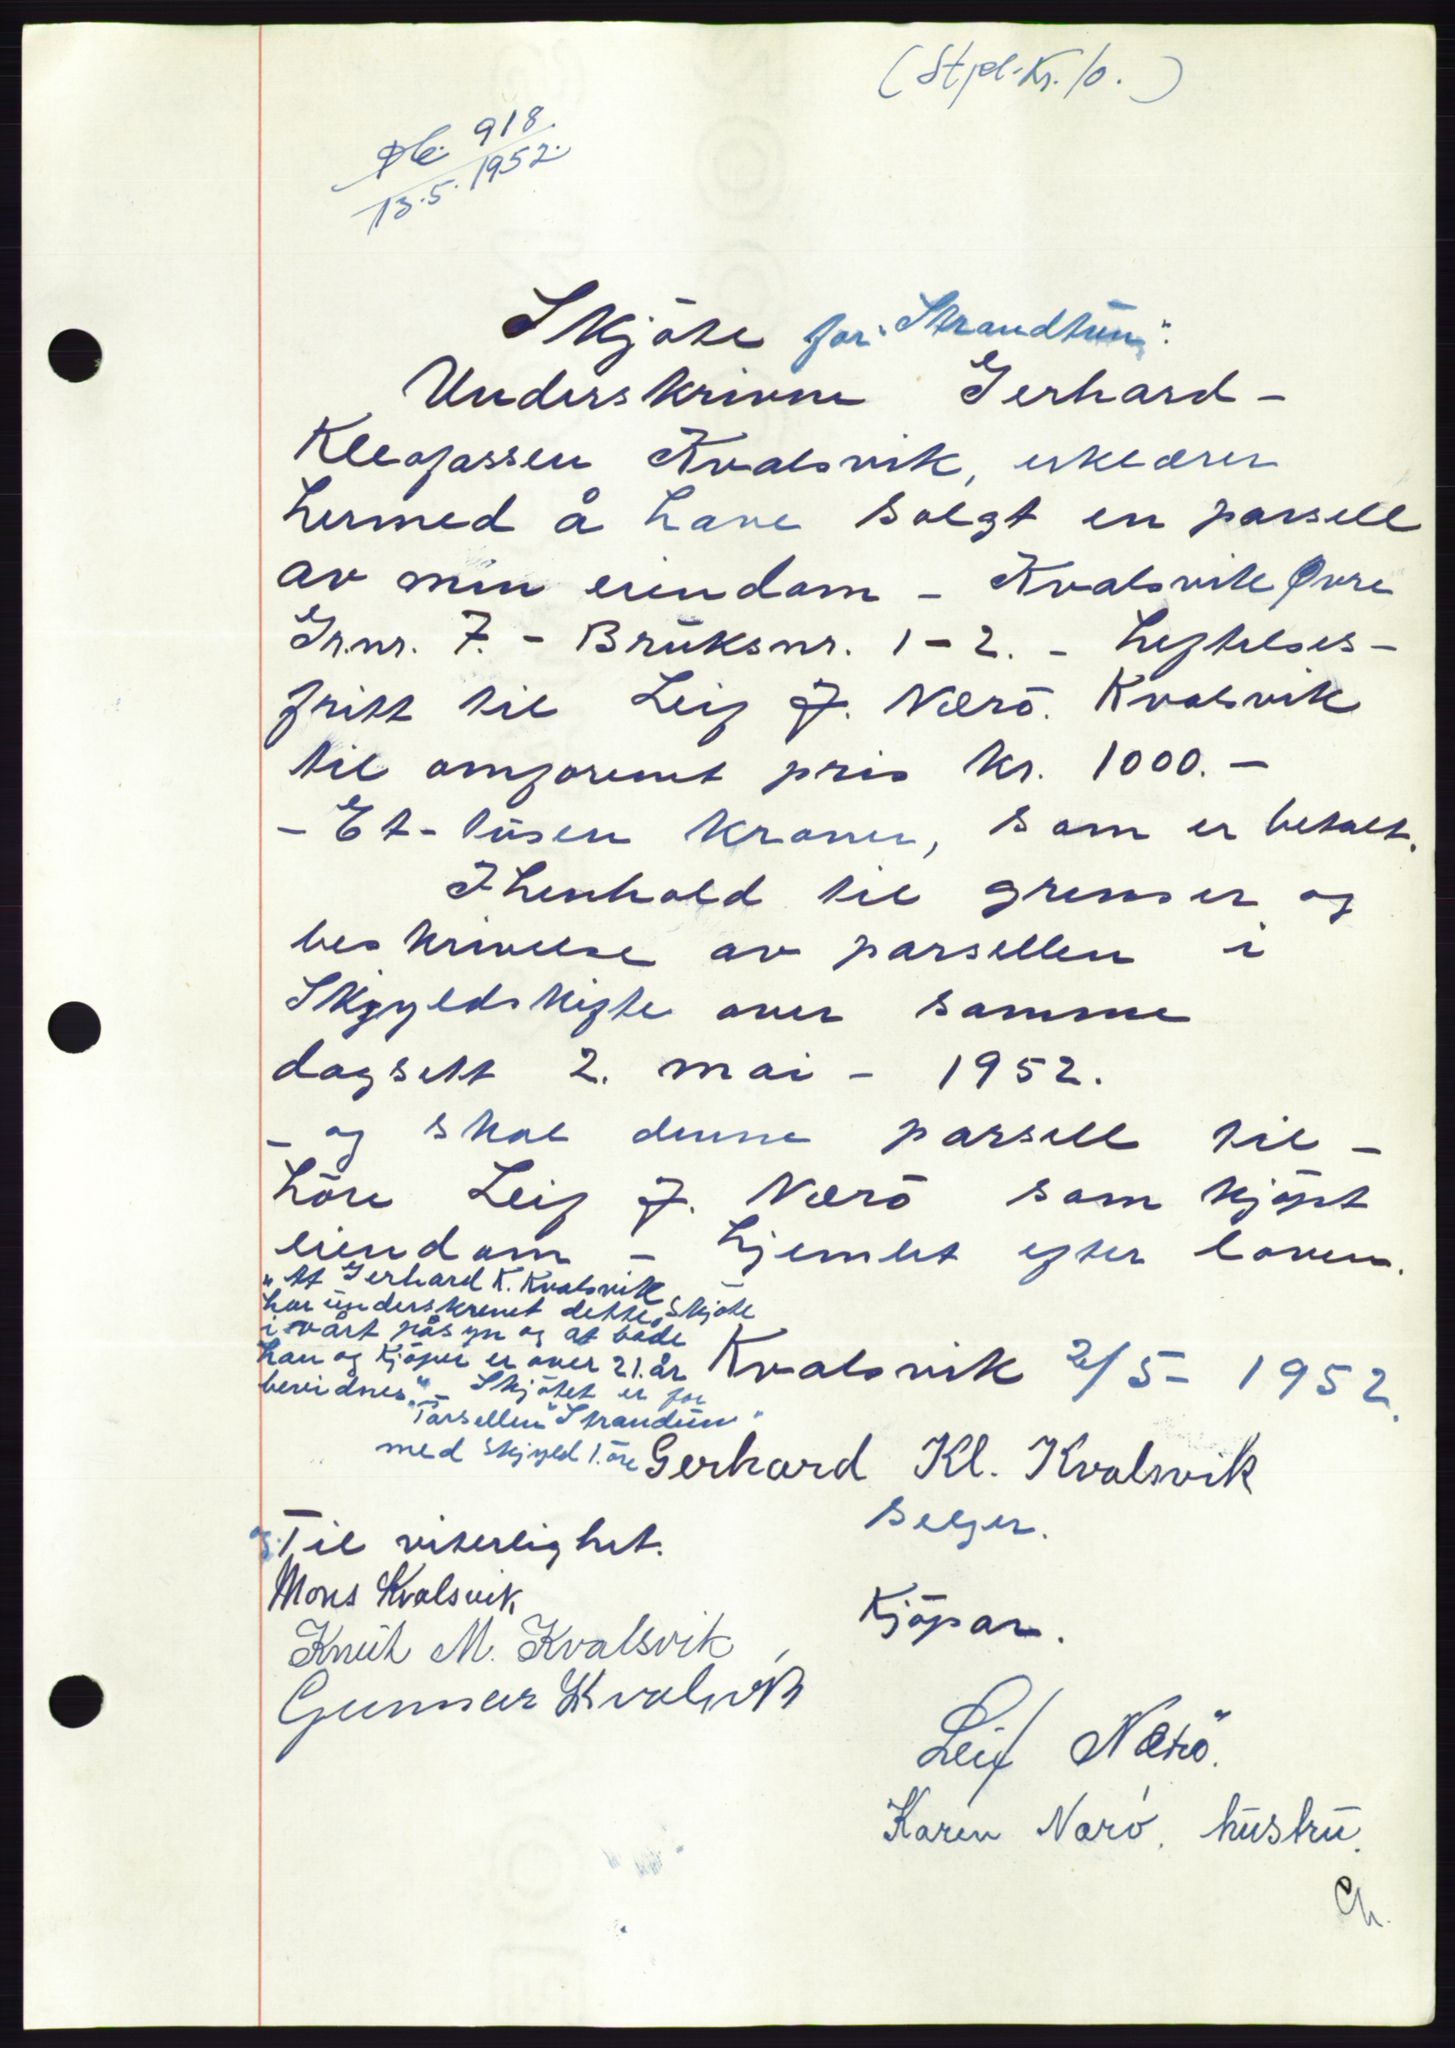 (Stpl. Kr. 10.)
Db. 918.
13.5. 1952.
Skjöte for "Strandtun".
Underskrivne Gerhard-
Kleofassen Kvalsvik, erklærer
hermed å have solgt en parsell
av min eiendom - Kvalsvik Øvre
Gr.nr. 7. - Bruksnr. 1-2. - heftelses-
fritt til Leif J. Nærö. Kvalsvik
til omforent pris kr. 1000.-
- Et-tusen kroner, som er betalt.
I henhold til grenser og
beskrivelse av parsellen i
Skjyldskifte over samme
dagsett 2. mai - 1952.
- og skal denne parsell til-
höre Leif J. Nærö som kjöpt
eiendom - hjemlet efter loven.
"At Gerhard K. Kvalsvik
har underskrevet dette skjöte
i vårt påsyn og at både
han og kjöper er over 21. år
bevidnes." - Skjötet er for
Parsellen "Strandtun"
med skjyld 1. öre
Kvalsvik 2/5- 1952.
Gerhard Kl. Kvalsvik
selger.
og Til viterlighet.
Mons Kvalsvik
Knut M. Kvalsvik,
Gunnar Kvalsvik
Kjöpar.
Leif Nærö.
Karen Nærö. hustru.